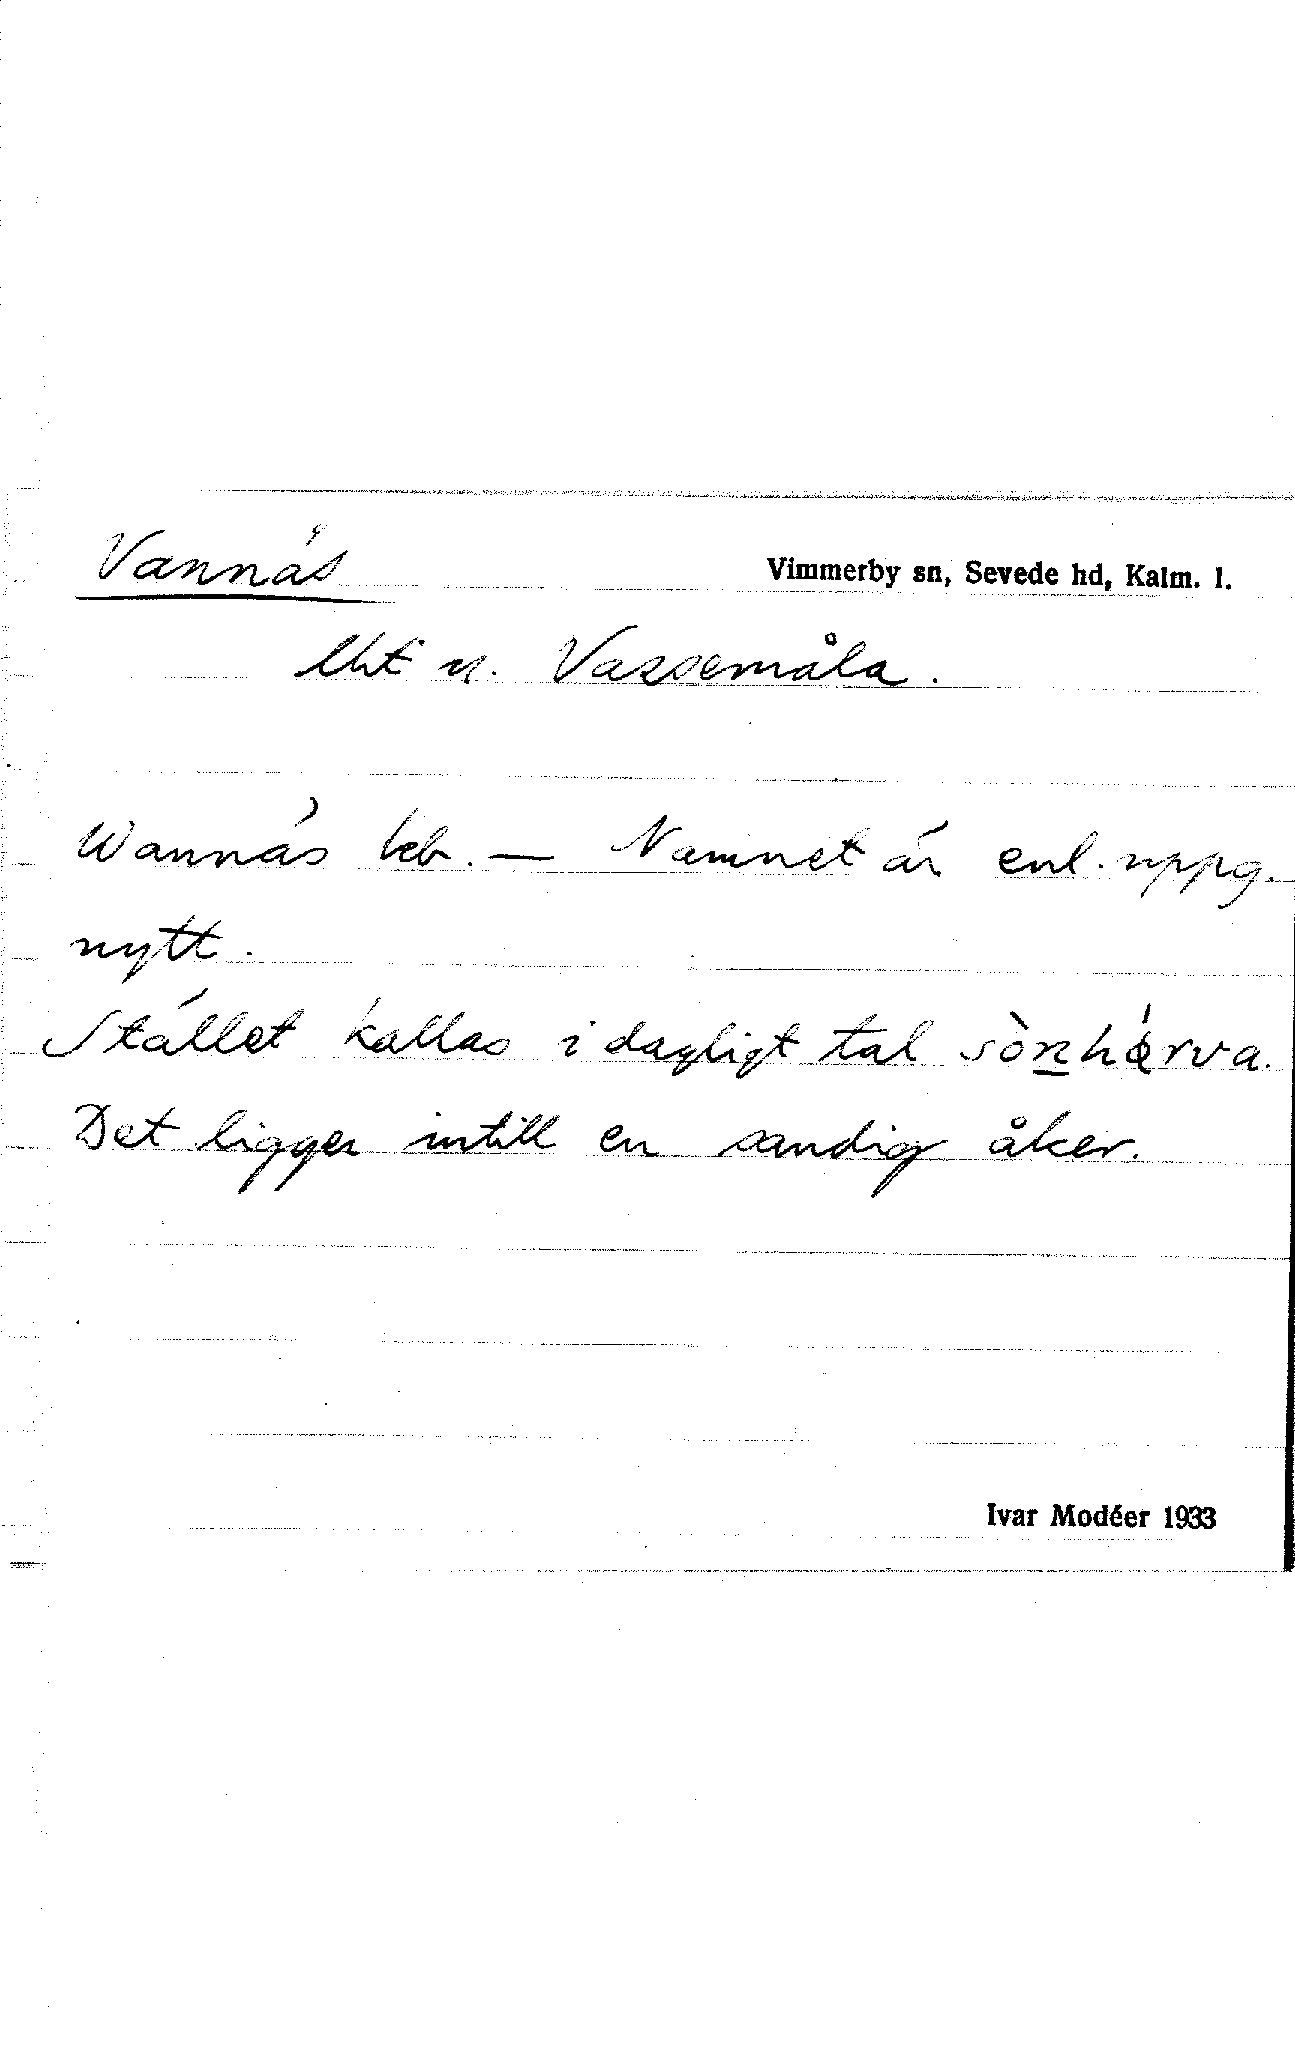 Vannäs
Vimmerby sn, Sevede hd, Kalm. l.
lht u. Vassemåla.
Wannäs keb. — Namnet är enl. uppg.
nytt.
Stället kallas i dagligt tal
Det ligger intill en sandig åker.
Ivar Modéer 1933